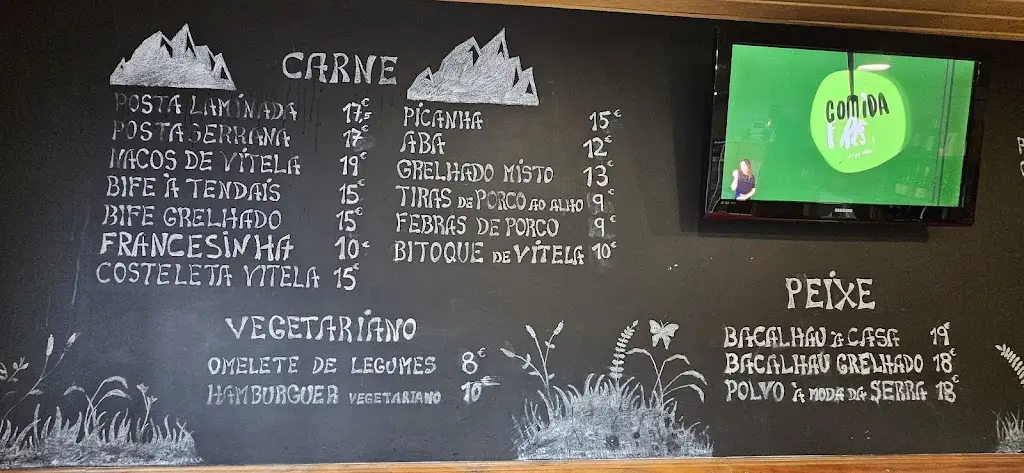 CARNE
POSTA LAMINADA 17,5€
POSTA SERRANA 17€
NACOS DE VITELA 19€
BIFE À TENDAIS 15€
BIFE GRELHADO 15€
FRANCESINHA 10€
COSTELETA VITELA 15€
PICANHA 15€
ABA 12€
GRELHADO MISTO 13€
TIRAS DE PORCO AO ALHO 9€
FEBRAS DE PORCO 9€
BITOQUE DE VITELA 10€
VEGETARIANO
OMELETE DE LEGUMES 8€
HAMBURGUER VEGETARIANO 10€
PEIXE
BACALHAU À CASA 19€
BACALHAU GRELHADO 18€
POLVO À MODA DA SERRA 18€
COMIDA
SAMSUNG